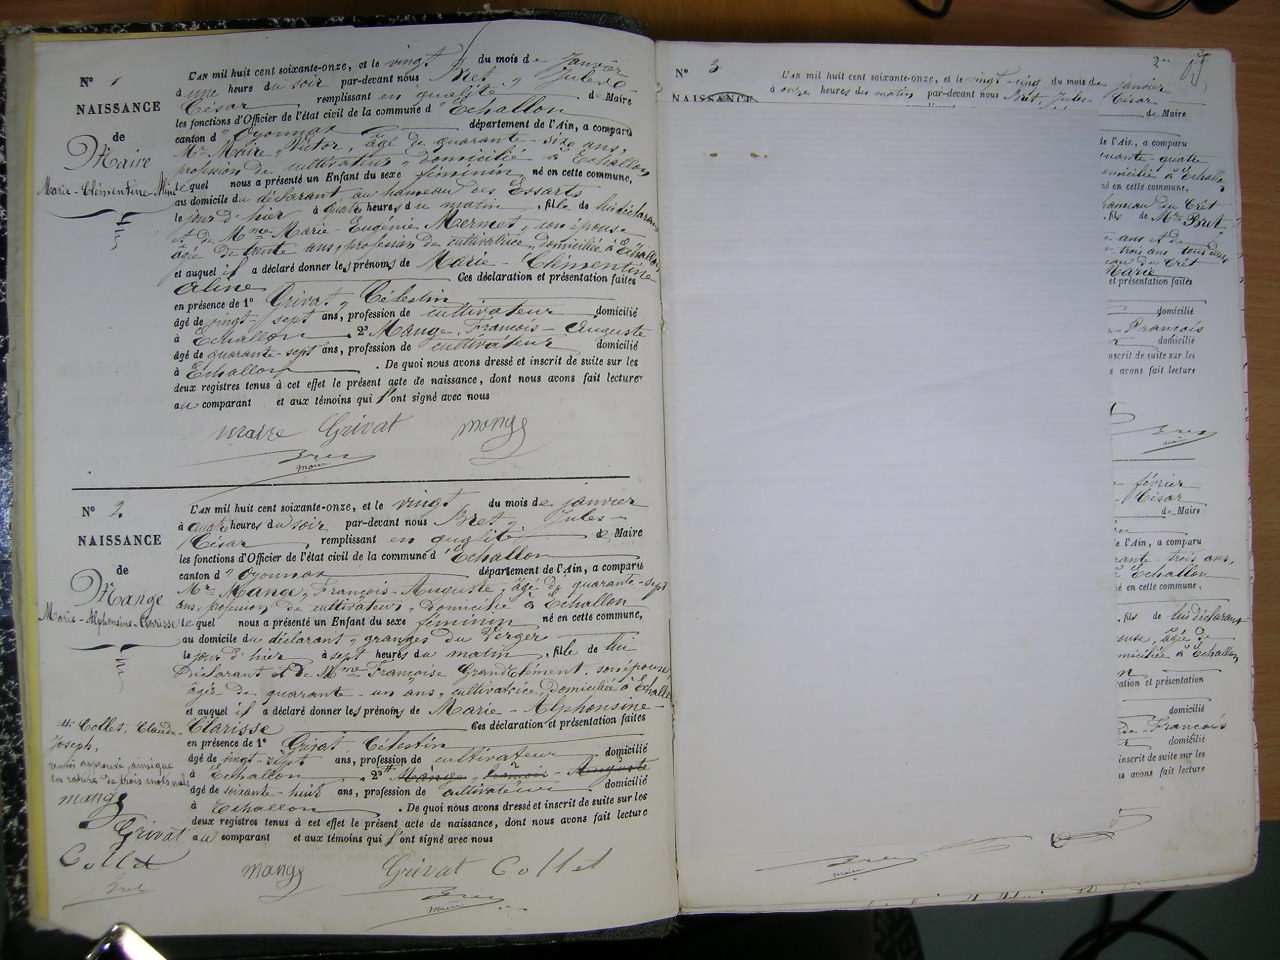 N° 1
NAISSANCE
de
Maire
Marie-Clémentine-Aline
L'AN mil huit cent soixante-onze, et le vingt du mois de Janvier
à une heure du soir par-devant nous Bret, Jules-
César remplissant en qualité de Maire
les fonctions d'Officier de l'état civil de la commune d'Echallon
canton d'Oyonnax département de l'Ain, a comparu
Mr Maire, Victor, âgé de quarante-sixe ans,
profession de cultivateur, domicilié à Echallon
lequel nous a présenté un Enfant du sexe féminin né en cette commune,
au domicile du déclarant au hameau des Essarts
le jour d'hier à quatre heures du matin, fille de lui déclarant
et de Mme Marie-Eugénie Mermet, son épouse
âgée de trente ans, profession de cultivatrice, domiciliée à Echallon
et auquel il a déclaré donner les prénoms de Marie-Clémentine
Aline Ces déclaration et présentation faites
en présence de 1° Grivat, Célestin
âgé de vingt-sept ans, profession de cultivateur domicilié
à Echallon 2° Mange, François-Auguste
âgé de quarante-sept ans, profession de cultivateur domicilié
à Echallon. De quoi nous avons dressé et inscrit de suite sur les
deux registres tenus à cet effet le présent acte de naissance, dont nous avons fait lecture
au comparant et aux témoins qui l'ont signé avec nous
maire Grivat mange
Bret
maire
N° 2
NAISSANCE
de
Mange
Marie-Alphonsine-Clarisse
L'AN mil huit cent soixante-onze, et le vingt du mois de janvier
à quatre heures du soir par-devant nous Bret, Jules-
César remplissant en qualité de Maire
les fonctions d'Officier de l'état civil de la commune d'Echallon
canton d'Oyonnax département de l'Ain, a comparu
Mr Mange, François-Auguste, âgé de quarante-sept
ans, profession de cultivateur, domicilié à Echallon
lequel nous a présenté un Enfant du sexe féminin né en cette commune,
au domicile du déclarant, granges du Verger
le jour d'hier à sept heures du matin, fille de lui
Déclarant et de Mme Françoise Grand Clément, son épouse
âgée de quarante-un ans, cultivatrice, domiciliée à Echallon
et auquel il a déclaré donner les prénoms de Marie-Alphonsine-
Clarisse Ces déclaration et présentation faites
en présence de 1° Grivat-Célestin
âgé de vingt-sept ans, profession de cultivateur domicilié
à Echallon 2° Mange, François-Auguste
âgé de soixante-huit ans, profession de cultivateur domicilié
à Echallon. De quoi nous avons dressé et inscrit de suite sur les
deux registres tenus à cet effet le présent acte de naissance, dont nous avons fait lecture
au comparant et aux témoins qui l'ont signé avec nous
Collet, Claude-
Joseph,
renvoi approuvé, ainsi que
la rature de trois mots nuls
mange
Grivat
Collet
Bret
mange Grivat Collet
Bret
maire
N° 3
NAISSANCE
L'AN mil huit cent soixante-onze, et le vingt-cinq du mois de janvier
à onze heures du matin par-devant nous Bret, Jules César
de Maire
de l'Ain, a comparu
quarante-quatre
domicilié à Echallon
né en cette commune,
hameau du Crêt
, fils de Mr Bret
ans et de
trois ans tous deux
du Crêt
Marie
et présentation faites
domicilié
François
domicilié
inscrit de suite sur les
avons fait lecture
Bret
maire
février
César
de Maire
de l'Ain, a comparu
quarante-trois ans,
Echallon
né en cette commune.
, fils de lui déclarant
épouse, âgée de
domiciliée à Echallon
déclaration et présentation
domicilié
de François
domicilié
inscrit de suite sur les
avons fait lecture
Bret
maire